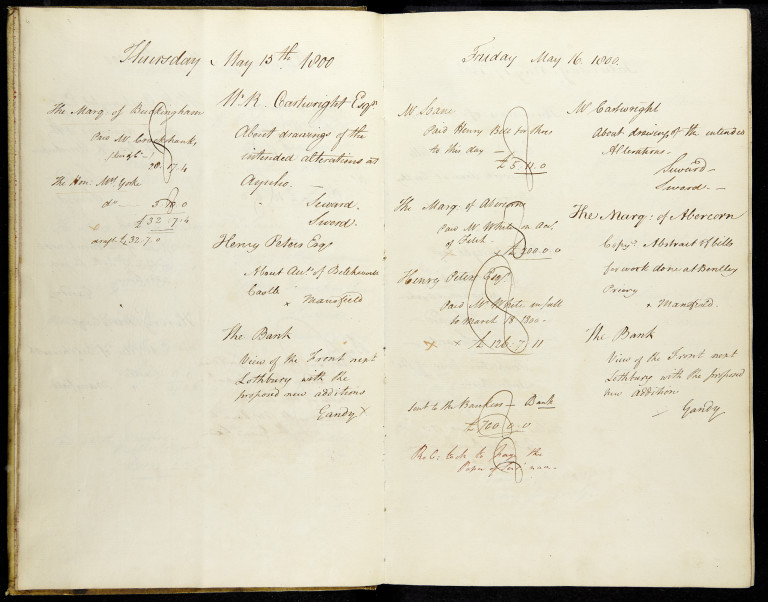 Thursday May 15th 1800
The Marq. of Buckingham
Paid Mr. Cruckshanks
28.17.4
The Hon. Mrs Yorke
do 5 0
£32.7.4
draft £32.7.0
Mr. R. Cartwright Esqr.
About drawings of the
intended alterations at
Aynho.
Seward.
Sword.
Henry Peters Esqr
About Acct. of
Castle
x Mansfield
The Bank
View of the Front next
Lothbury with the
proposed new additions
Gandy x
Friday May 16. 1800.
Mr Soane
Paid Henry Bill for Shoes
to this day
£5.11.0
The Marq. of Abercorn
Paid Mr. White on Acct.
of
£200.0.0
Henry Peters Esqr.
Paid Mr White in full
to March 18 1800.
x x £126.7.11
Sent to the Bankers Bank
£700.0.0
the
Mr Cartwright
About drawings of the intended
Alterations.
Seward
Sword.
The Marq: of Abercorn
Copyg. Abstract of bills
for work done at Bentley
Priory
x Mansfield.
The Bank
View of the Front next
Lothbury with the proposed
new addition
Gandy